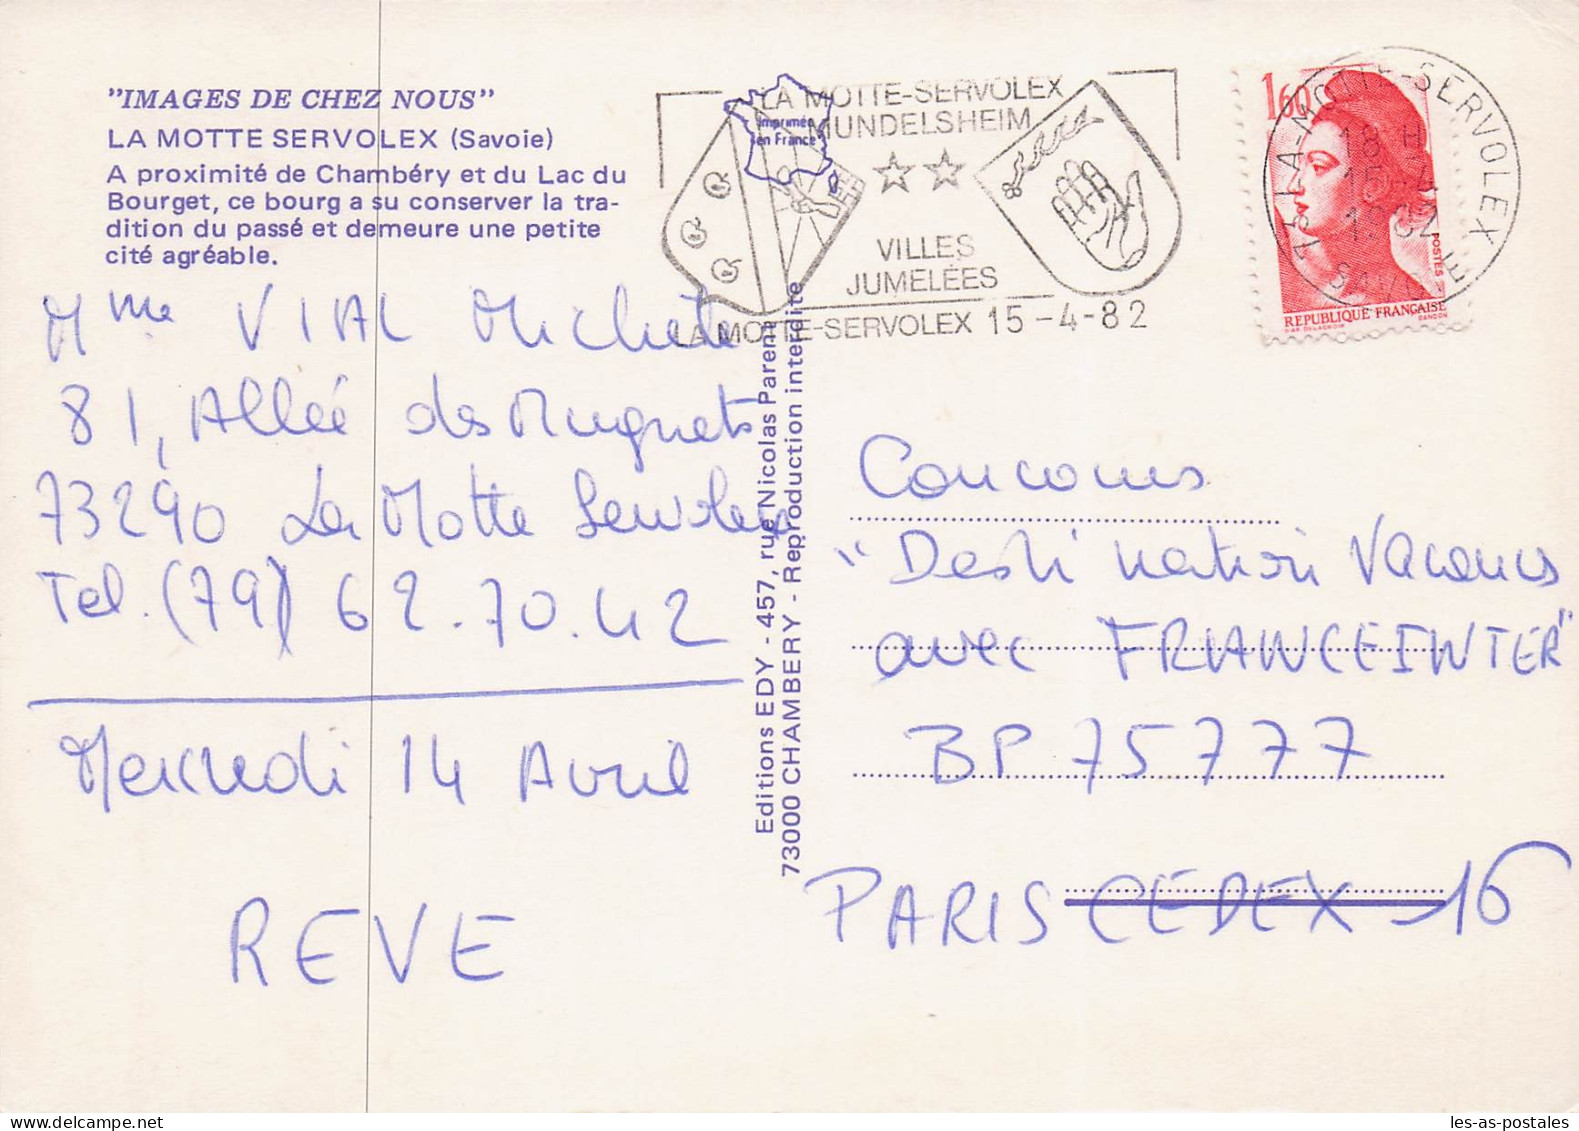 "IMAGES DE CHEZ NOUS"
LA MOTTE SERVOLEX (Savoie)
A proximité de Chambéry et du Lac du
Bourget, ce bourg a su conserver la tra-
dition du passé et demeure une petite
cité agréable.
Mme VIAL Michèle
81, Allée des Muguets
73290 La Motte Servolex
Tel. (79) 62.70.42
Mercredi 14 Avril
REVE
Imprimée
en France
LA MOTTE-SERVOLEX
MUNDELSHEIM
VILLES
JUMELÉES
LA MOTTE-SERVOLEX 15-4-82
LA-MOTTE-SERVOLEX
18 H
15-4
1982
SAVOIE
1,60
POSTES
REPUBLIQUE FRANÇAISE
D'AP. DELACROIX GANDON
Editions EDY - 457, rue Nicolas Parent
73000 CHAMBERY - Reproduction interdite
Concours
"Destination Vacances
avec FRANCE INTER"
BP 75777
PARIS CEDEX 16
les-as-postales